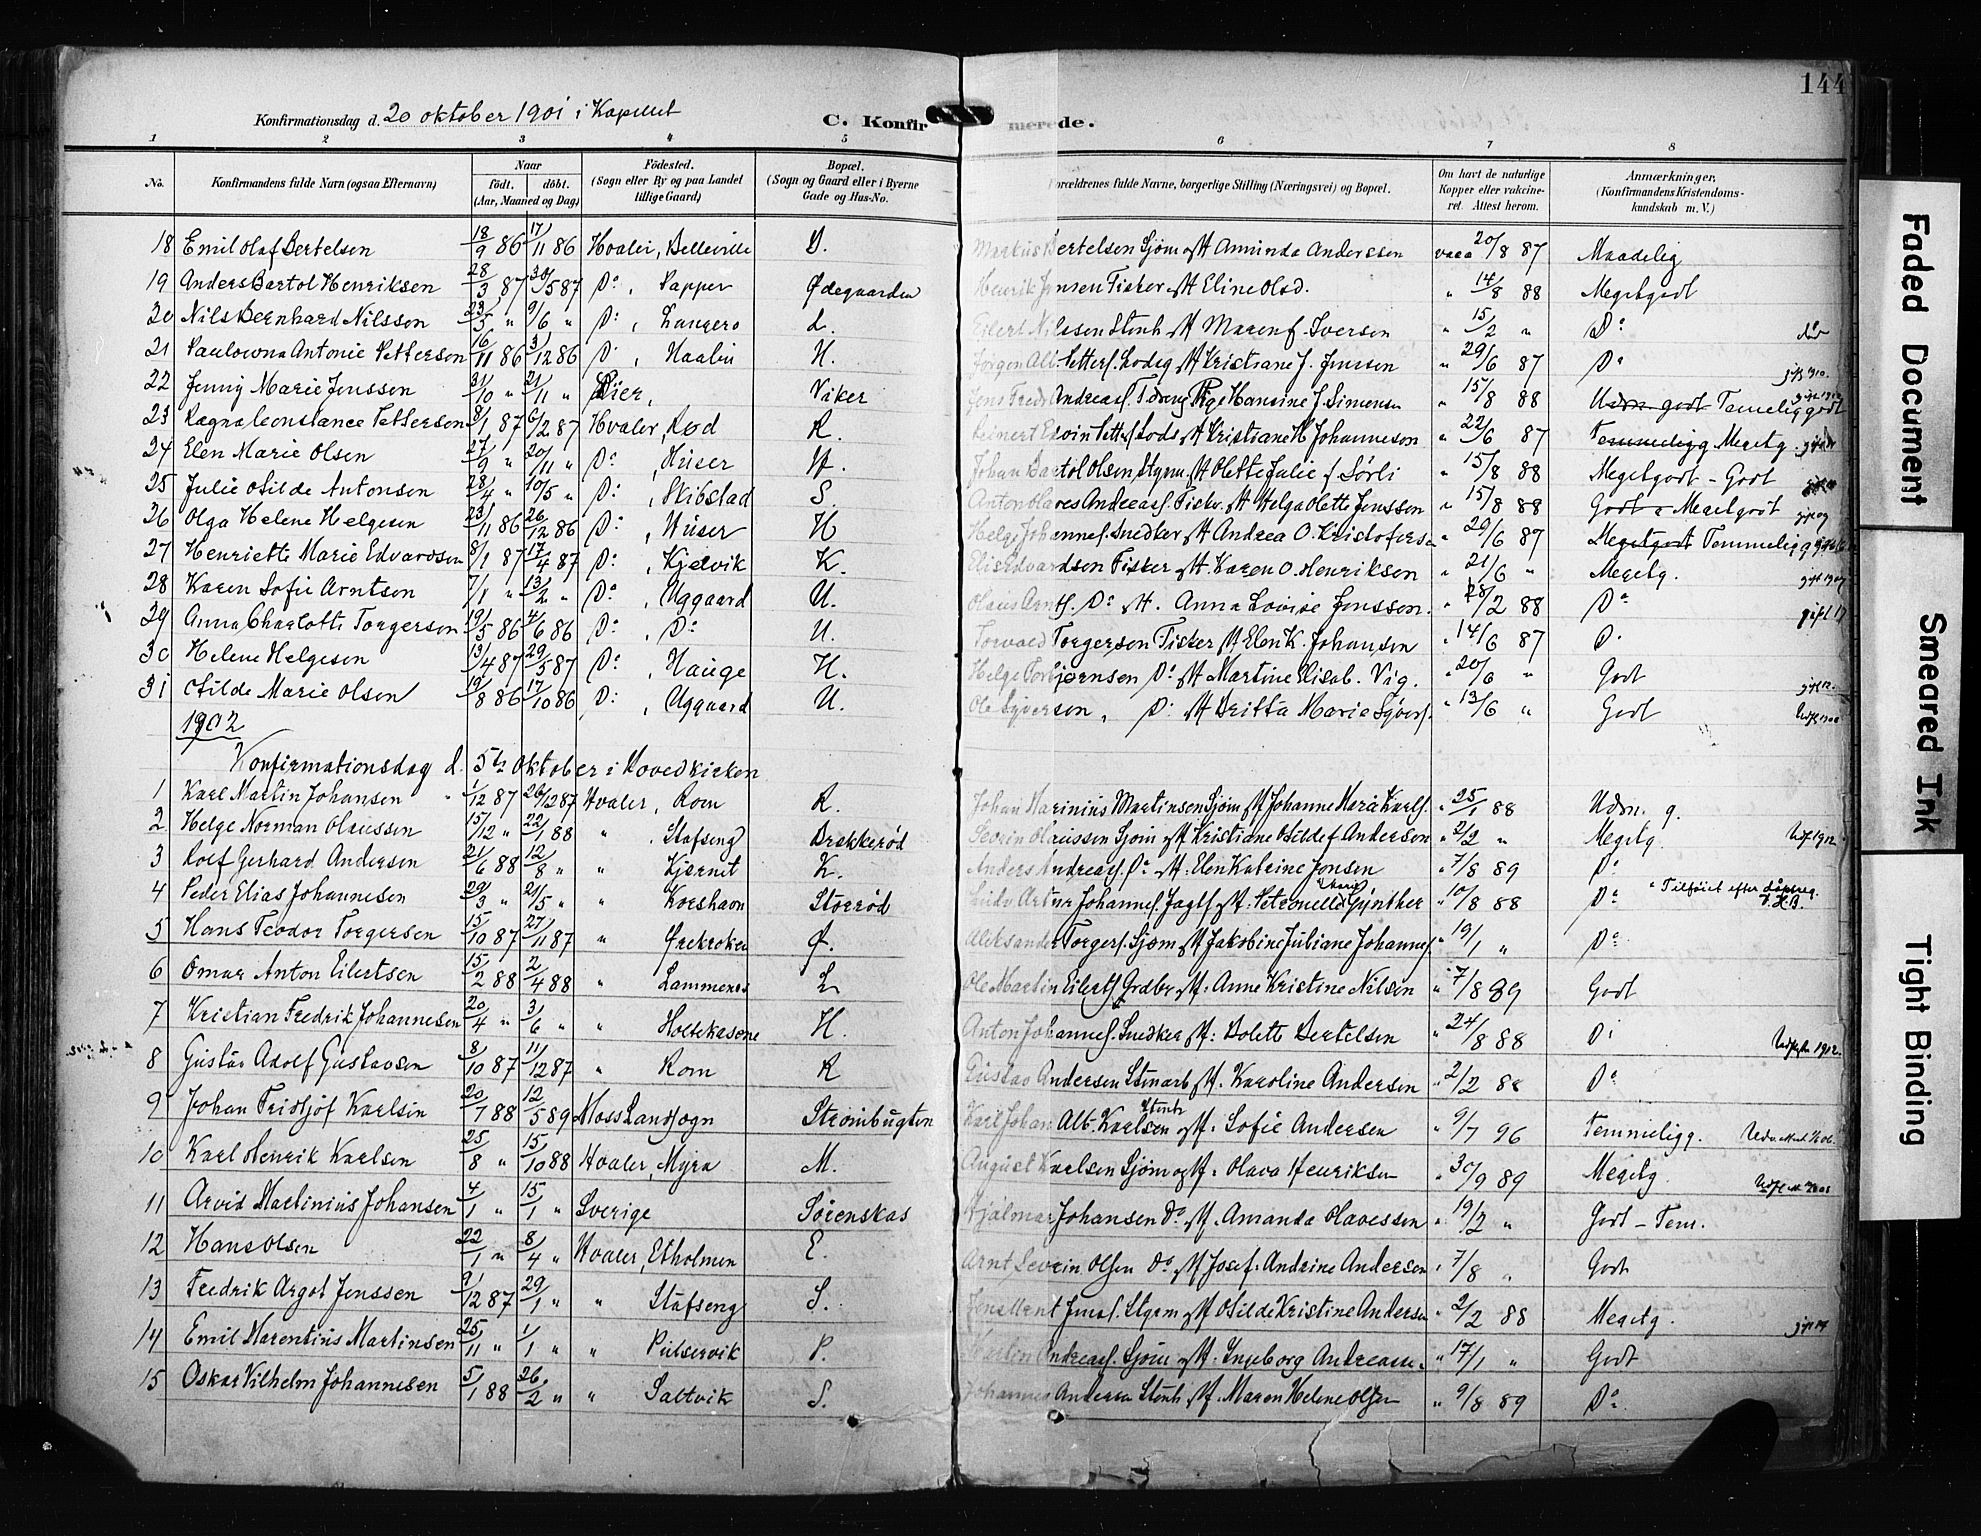 144
Konfirmationsdag d. 20 oktober 1901 i Kapellet
C. Konfirmerede.
1 2 3 4 5 6 7 8
No. Konfirmandens fulde Navn (ogsaa Efternavn) Naar født. døbt. (Aar, Maaned og Dag) Fødested. (Sogn eller By og paa Landet tillige Gaard) Bopæl. (Sogn og Gaard eller i Byerne Gade og Hus-No. Forældrenes fulde Navne, borgerlige Stilling (Næringsvei) og Bopæl. Om havt de naturlige Kopper eller vakcineret. Attest herom. Anmærkninger, (Konfirmandens Kristendomskundskab m. V.)
18 Emil Olaf Bertelsen 18/9 86 17/11 86 Hvaler, Belleville B. Markus Bertelsen Sjøm. M Aminda Anderssen vacc 20/8 87 Maadelig
19 Anders Bartol Henriksen 28/3 87 30/5 87 Do, Papper Ødegaarden Henrik Jensen Fisker M Eline Olsd. " 14/8 88 Megetgodt
20 Nils Bernhard Nilsson 23/5 " 9/6 " Do, Laugero L. Eilert Nilssen Stenh M Maren f. Iversen " 15/2 " Do
21 Paulowna Antonie Pettersen 16/11 86 3/12 86 Do, Haabu H. Jørgen Alb. Petters. Lods M Kristiane J. Jenssen " 29/6 87 Do
22 Jenny Marie Jenssen 31/10 " 21/11 " Rier, Viker Andreas. Pige Hansine J. Simensen " 15/8 88 Udm. godt Temelig godt
23 Ragna Constance Pettersen 8/1 87 6/2 87 Hvaler, Rød R. Reinert Edvin Petters. Lods M Kristiane H Johannesen " 22/6 87 Temmelig Megetg.
24 Elen Marie Olsen 27/9 " 20/11 " Do, Huser H. Johan Bartol Olsen Styrm. M Olette Julie f Sørli " 15/8 88 Megetgodt - Godt
25 Julie Otilde Antonsen 28/4 " 10/5 " Do, Skibstad S. Anton Olaves Andreas. Fisker M Helga Olette Jenssen " 15/8 88 Godt Megetgodt
26 Olga Helene Helgesen 23/11 86 26/12 86 Do, Huser H Helge Johannes. Snedker M Andrea O. Kristofersen " 29/6 87 Megetgodt Temmelig g
27 Henriette Marie Edvardsen 8/1 87 17/4 87 Do, Kjølvik K. Elis Edvardsen Fisker M Karen O. Henriksen " 21/6 " Megetg.
28 Karen Sofie Arntsen 7/1 " 13/2 " Do, Uggaard U. Olaus Arnts. Do M. Anna Lovise Jenssen. " 28/2 88 Do
29 Anna Charlotte Torgersen 19/5 86 4/6 86 Do, Do U. Torvald Torgersen Fisker M Elen K. Johansen " 14/6 87 Do
30 Helene Helgesen 13/4 87 29/5 87 Do, Hauge H. Helge Torbjørnsen Do M Martine Elisab. Vig. " 20/6 " Godt
31 Otilde Marie Olsen 19/8 86 17/10 86 Do, Uggaard U. Ole Syversen, Do M Britta Marie Syvers. " 13/6 " Godt
1902
Konfirmationsdag d. 5te Oktober i Hovedkirken
1 Karl Martin Johansen 1/12 87 26/12 87 Hvaler, Rom R. Johan Marinius Martinsen Sjøm. M Johanne Maria Karls. " 25/1 88 Udm. g.
2 Helge Norman Olaussen 15/12 " 22/1 88 " Stafseng Brekkerød Severin Olaussen Sjøm M Kristiane Otilde f Andersen " 2/2 " Megetg. Udf 1912
3 Rolf Gerhard Andersen 21/6 88 12/8 " " Kjernet K. Anders Andreas. Do M. Elen Katrine Jensen " 7/8 89 Do
4 Peder Elias Johannesen 29/3 " 21/5 " " Korshavn Storrød Artur Johannes. Jagtf M. Petronelle Gynther " 10/8 88 Do " Tilføiet efter dåpsreg.
5 Hans Teodor Torgersen 15/10 87 27/11 87 " Ørekroken Ø. Aleksander Torgers. Sjøm M Jakobine Juliane Johannes. " 19/1 " Do
6 Omar Anton Eilertsen 15/2 88 2/4 88 " Lammenes L Ole Martin Eilerts Gradbr. M. Anne Kristine Nilsen " 7/8 89 Godt
7 Kristian Fredrik Johannesen 20/4 " 3/6 " " Holtekasene H. Anton Johannes. Snedker M: Bolette Bertelsen " 24/8 88 Do
8 Gustav Adolf Gustavsen 8/10 87 11/12 87 " Rom R Gustav Andersen Stenarb M. Karoline Andersen " 2/2 88 Do
9 Johan Fridtjof Karlsen 20/7 88 12/5 89 Moss Landsogn Strømbugten Karl Johan Alb. Karlsen Stenh M. Sofie Andersen " 9/7 96 Temmeligg.
10 Karl Henrik Karlsen 25/8 " 15/10 88 Hvaler, Myra M. August Karlsen Sjøm og M. Olava Henriksen " 30/9 89 Megetg.
11 Arvid Martinius Johansen 4/1 " 15/1 " Sverige Sørenskas Hjalmar Johansen Do M. Amanda Olavessen " 19/2 " Godt - Tem.
12 Hans Olsen 22/1 " 8/4 " Hvaler, Etholmen E. Arnt Severin Olsen Do M Josef. Andrine Andersen " 7/8 " Godt
13 Fredrik Argot Jenssen 9/12 87 29/1 " " Stafseng S. Jens Marent Jens. Styrm M Otilde Kristine Andersen " 2/2 88 Megetg.
14 Emil Marentius Martinsen 25/11 " 1/1 " " Pulservik P. Martin Andreas. Sjøm M. Ingeborg Andreasen " 17/1 " Godt
15 Oskar Vilhelm Johannesen 5/1 88 26/2 " " Saltvik S. Johannes Andersen Stenh M. Maren Helene Olsen " 9/8 89 Do
Faded Document
Smeared Ink
Tight Binding